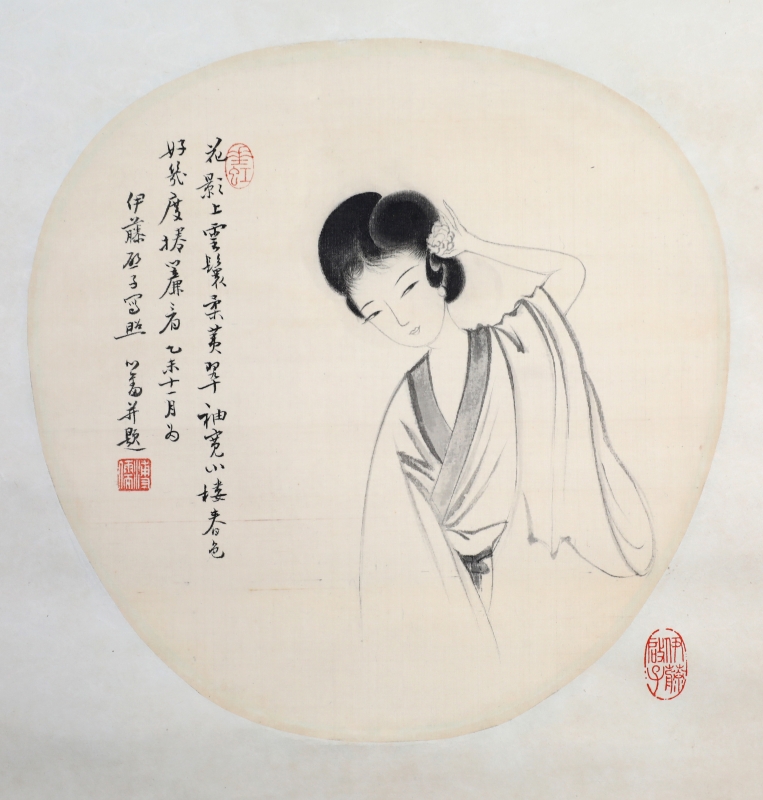 花影上雲鬟柔荑翠袖寬小樓春色
好幾度捲簾看乙未十一月為
伊藤啟子寫照 心畬并題
溥儒
伊藤啟子